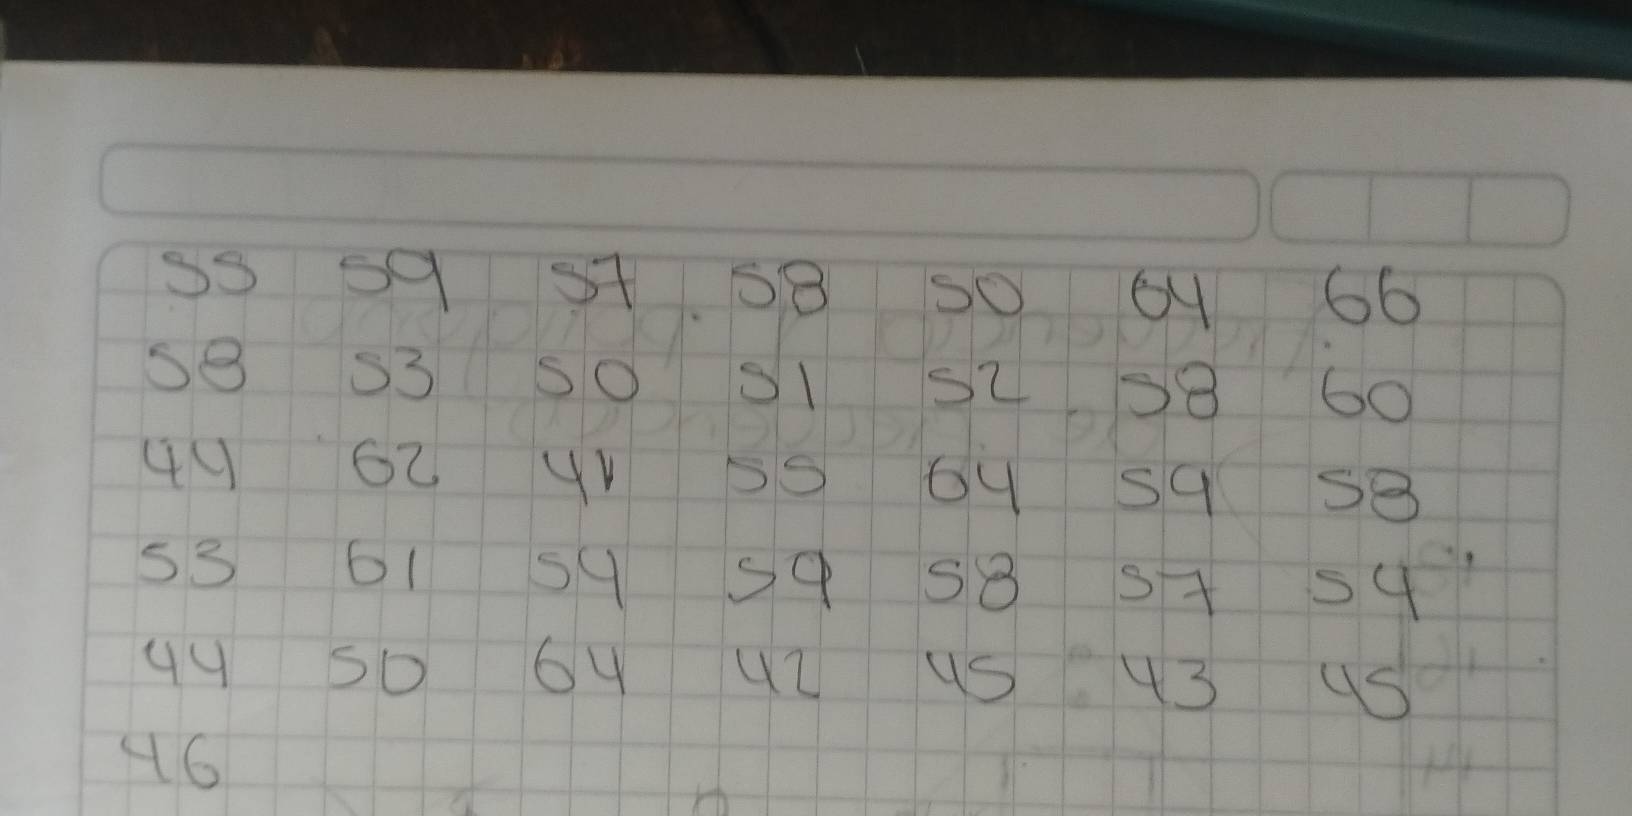 55 59 57 58 50 64 66
58 53 50 51 52 58 60
44 62 41 55 64 59 58
53 61 54 59 58 57 54
44 50 64 42 45 43 45
46